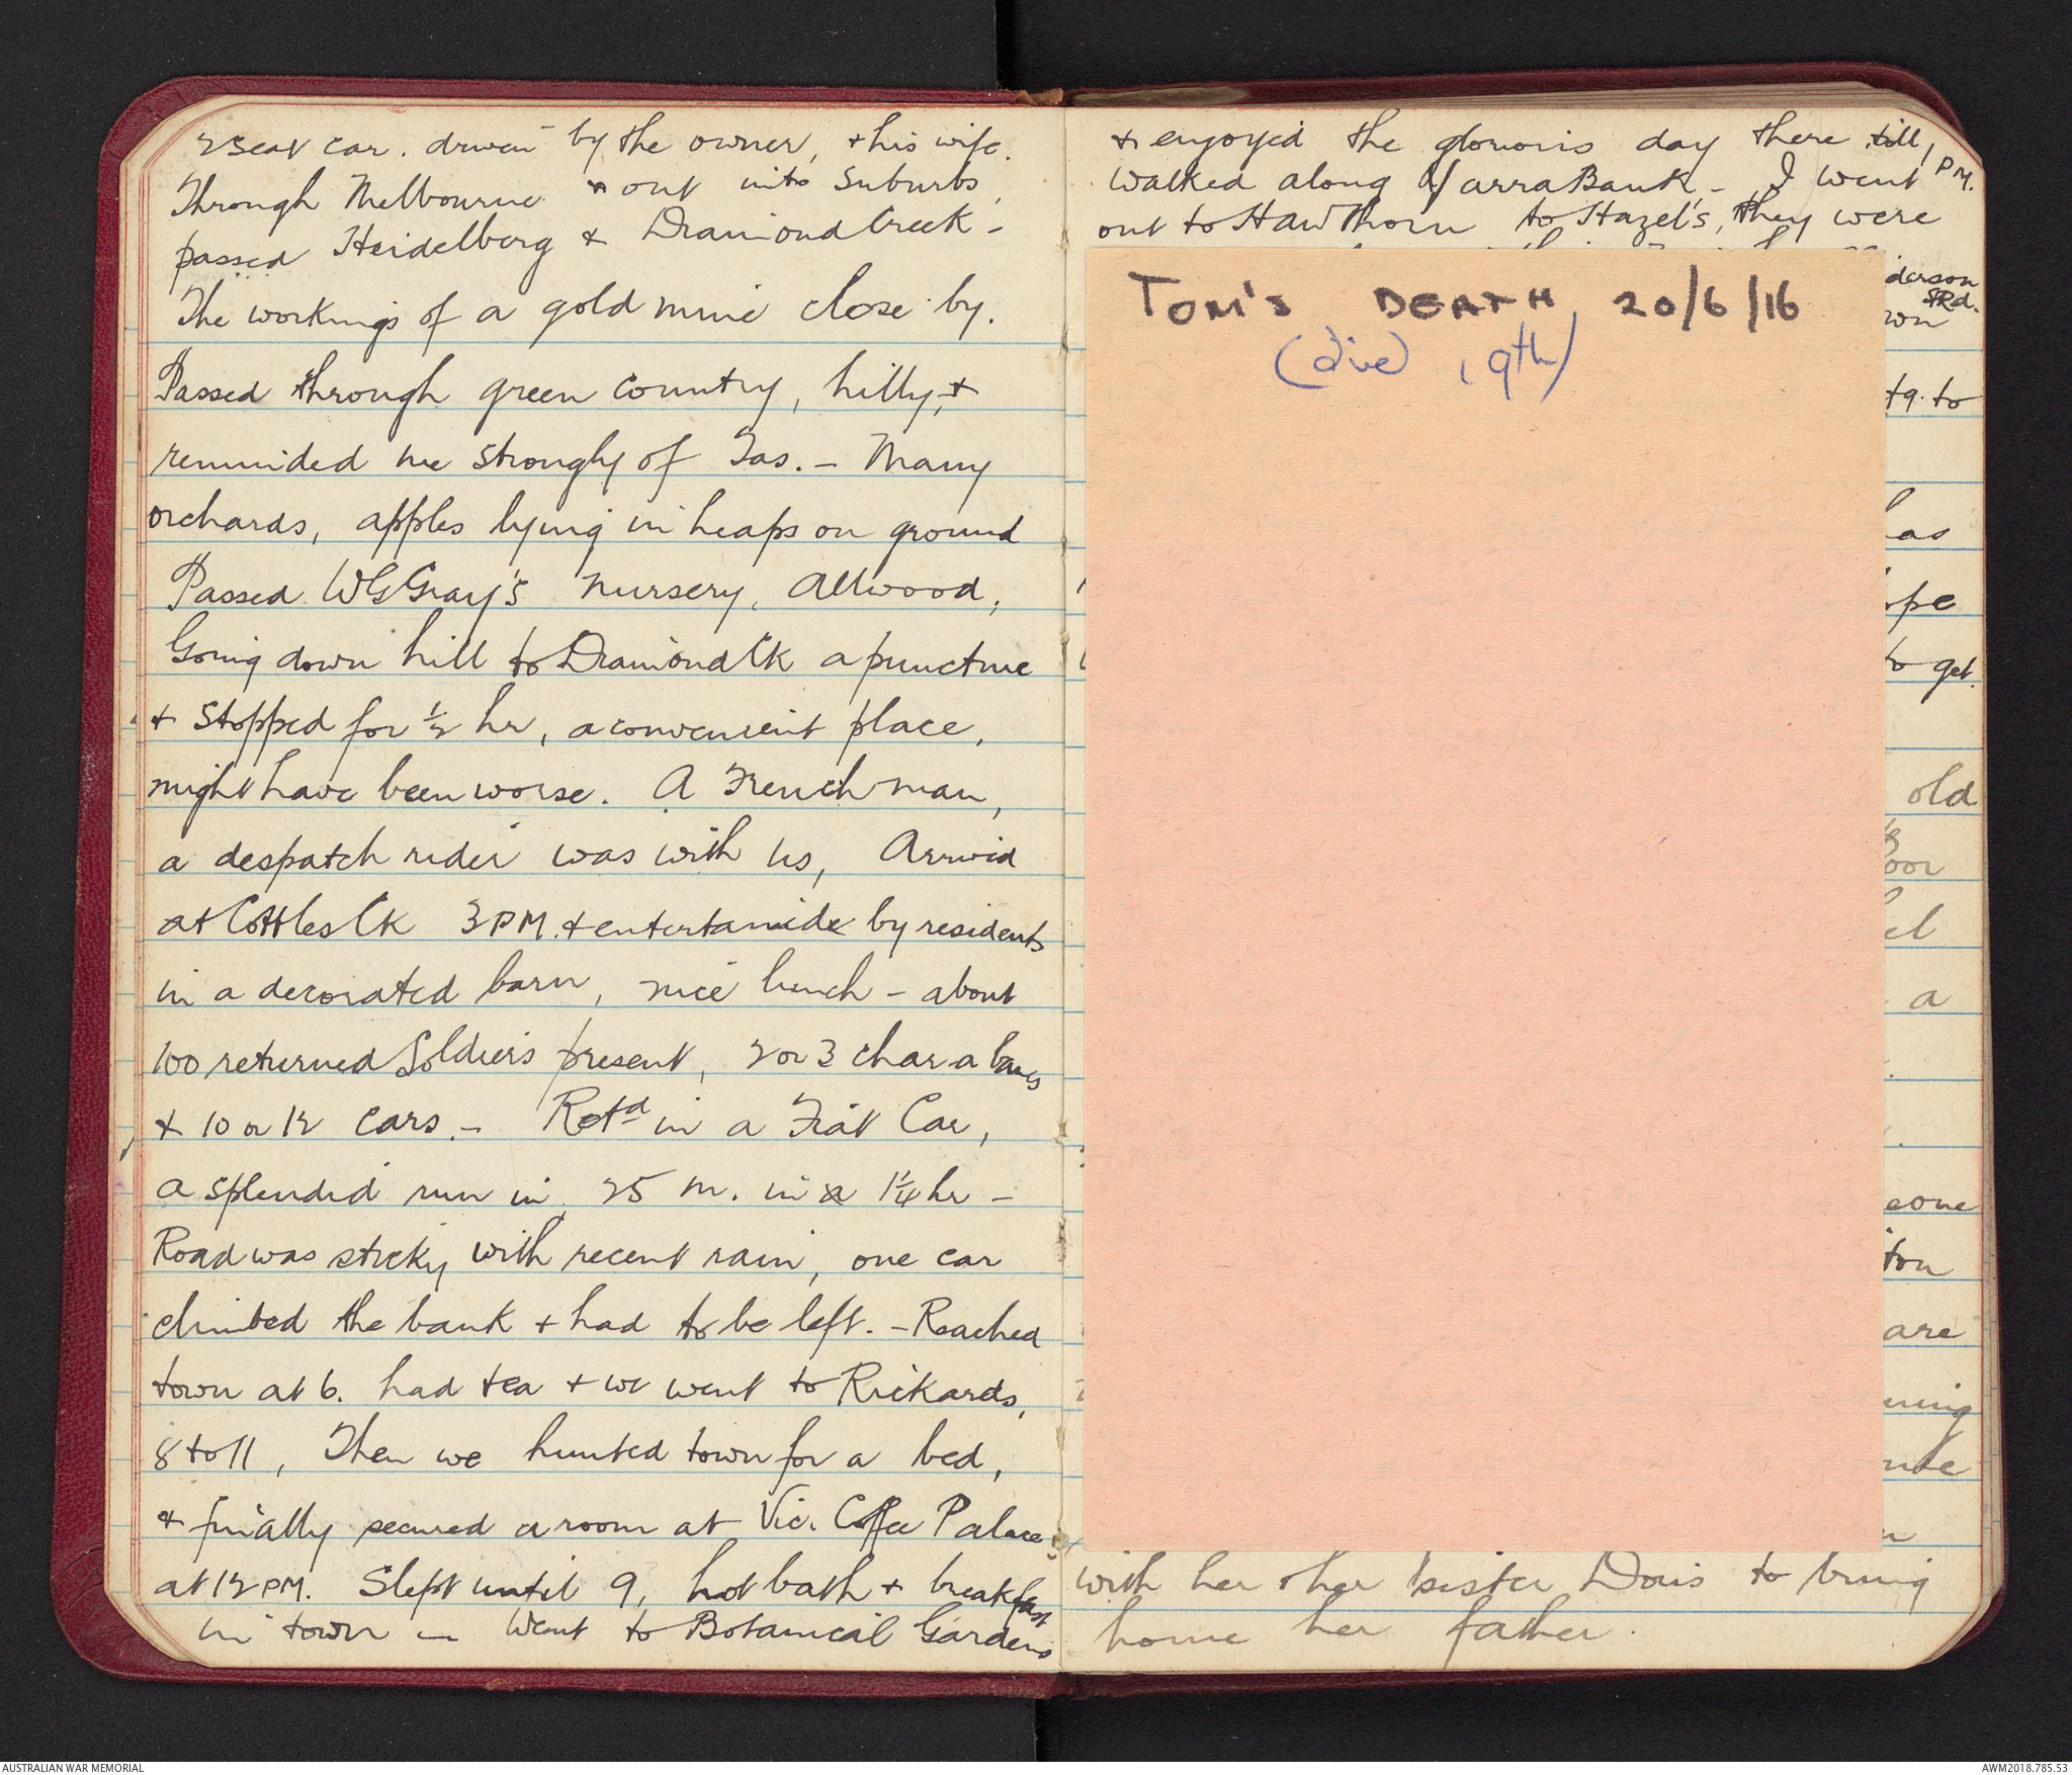 2 seat car. driven by the owner, + his wife.
Through Melbourne + out into suburbs,
passed Heidelberg & Diamond Creek -
The workings of a gold mine close by.
Passed through green country, hilly, +
reminded me strongly of Tas. - Many
orchards, apples lying in heaps on ground
Passed WG Gray's nursery, Allwood,
Going down hill to Diamond Ck a puncture
+ stopped for ½ hr, a convenient place,
might have been worse. A Frenchman,
a despatch rider was with us, Arrived
at Cottles Ck 3 PM. + entertained by residents
in a decorated barn, nice lunch - about
100 returned Soldiers present, 2 or 3 char a bancs
+ 10 or 12 cars. - Retd in a Fiat Car,
a splendid run in, 25 m. in 1¼ hr -
Road was sticky with recent rain, one car
climbed the bank + had to be left. - Reached
town at 6. had tea + we went to Rickards,
8 to 11, Then we hunted town for a bed,
+ finally secured a room at Vic. Coffee Palace
at 12 PM. Slept until 9, hot bath + breakfast
in town - Went to Botanical Gardens
+ enjoyed the glorious day there till 1 PM.
Walked along Yarra Bank - I went
out to Hawthorn to Hazel's, they were
Tom's DEATH, 20/6/16
(died 19th)
derson
Rd.
wn
to
as
ope
to get.
old
oor
el
a
eone
ton
are
ning
with her + her sister Doris to bring
home her father.
AUSTRALIAN WAR MEMORIAL
AWM2018.785.53